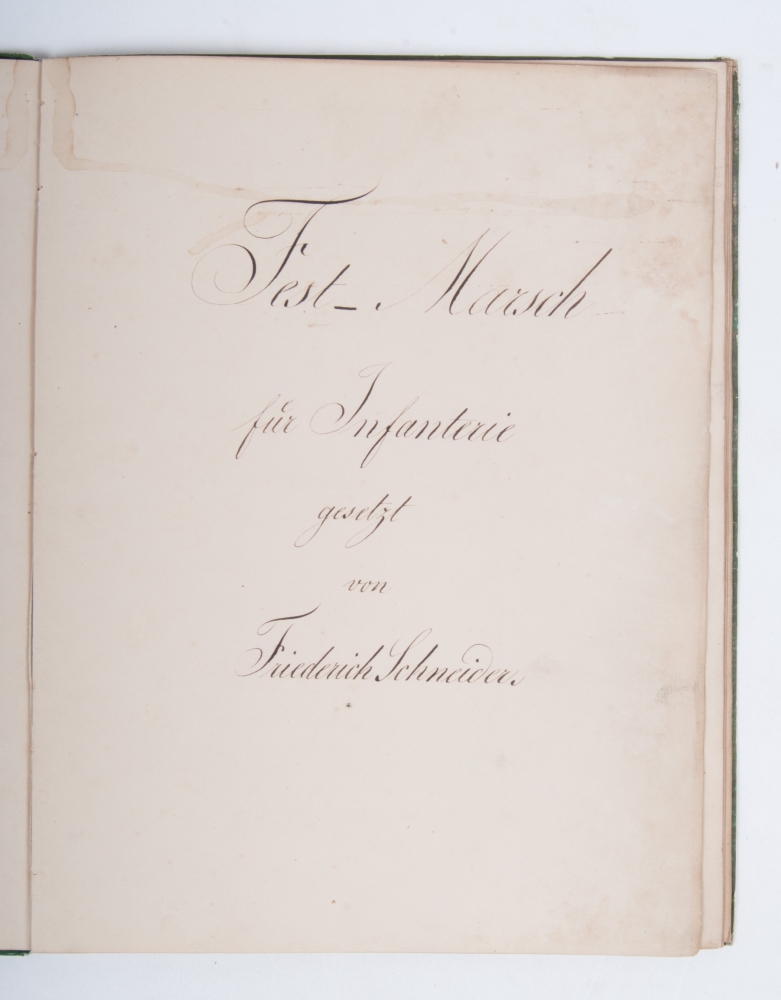 Fest - Marsch
für Infanterie
gesetzt
von
Friederich Schneider.